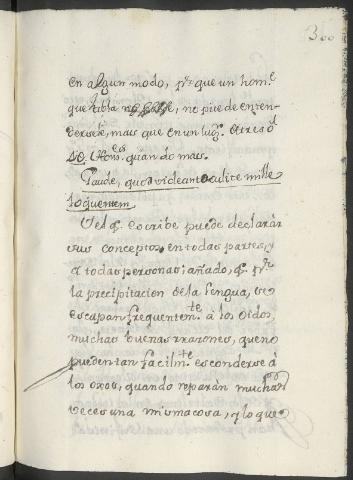 300
en algun modo, pr. que un hom.e
que habla no puede enten-
derse de, mas que en un lug.r
quando mas.
Gaude, quod videant oculi te mille
loquentem
Y el q. escribe puede declarar
sus conceptos en todas partes, y
a todas personas: añado, q. pr.
la precipitacion de la lengua, se
escapan frequentem.te à los oidos,
muchas buenas rrazones, que no
pueden tan facilm.te esconderse à
los oxos, quando reparan muchas
veces una misma cosa, q lo que